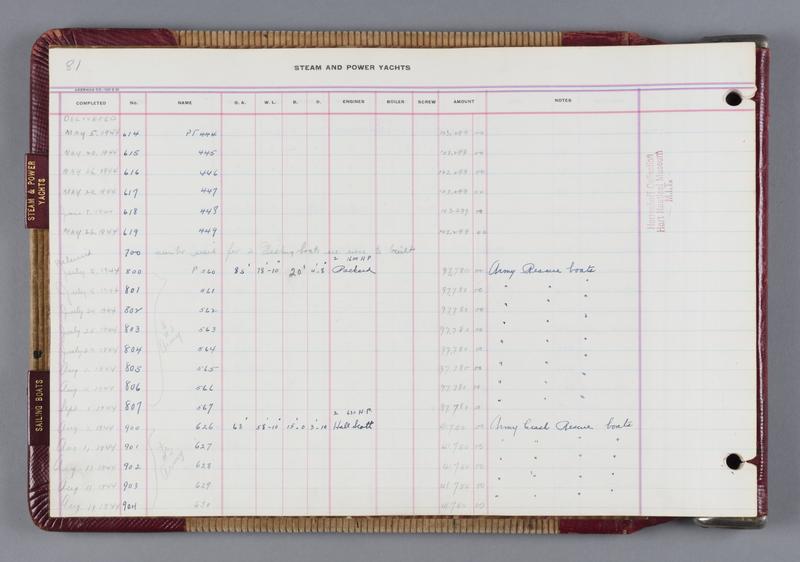 81
STEAM AND POWER YACHTS
COMPLETED No. NAME O. A. W. L. B. D. ENGINES BOILER SCREW AMOUNT NOTES
DELIVERED
May 5, 1944 614 PT 444 00
May 20, 1944 615 445 00
May 26, 1944 616 446 00
May 1944 617 447 00
June 1944 618 448 00
May 26, 1944 619 449 00
Delivered 700 number used for 2 fishing boats we were to built
July 1944 800 P 560 85' 78'-10" 20' 4'-8" 2 1600 HP Packard 97,780 00 Army Rescue boats
July 1944 801 561 97,780 00 " " "
July 1944 802 562 97,780 00 " " "
July 25 1944 803 563 97,780 00 " " "
July 1944 804 564 97,780 00 " " "
Aug 1944 805 565 97,780 00 " " "
Aug 1944 806 566 97,780 00 " " "
Sept 1944 807 567 97,780 00 " " "
for Army
Aug 1944 900 626 63' 58'-10" 15'-0 3-10 2 630 H.P. Hall Scott 41,750 00 Army Crash Rescue boats
Aug 1, 1944 901 627 41,750 00 " " " "
Aug 1944 902 628 41,750 00 " " " "
Aug 1944 903 629 41,750 00 " " " "
Aug 19 1944 904 630 41,750 00 " " " "
for Army
Herreshoff Collection
Hart Nautical Museum
M.I.T.
STEAM & POWER
YACHTS
SAILING BOATS